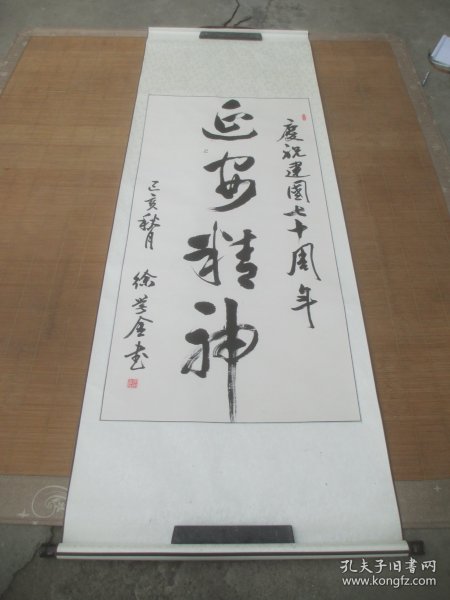 慶祝建國七十周年
延安精神
己亥秋月 徐学全书
孔夫子旧书网
www.kongfz.com